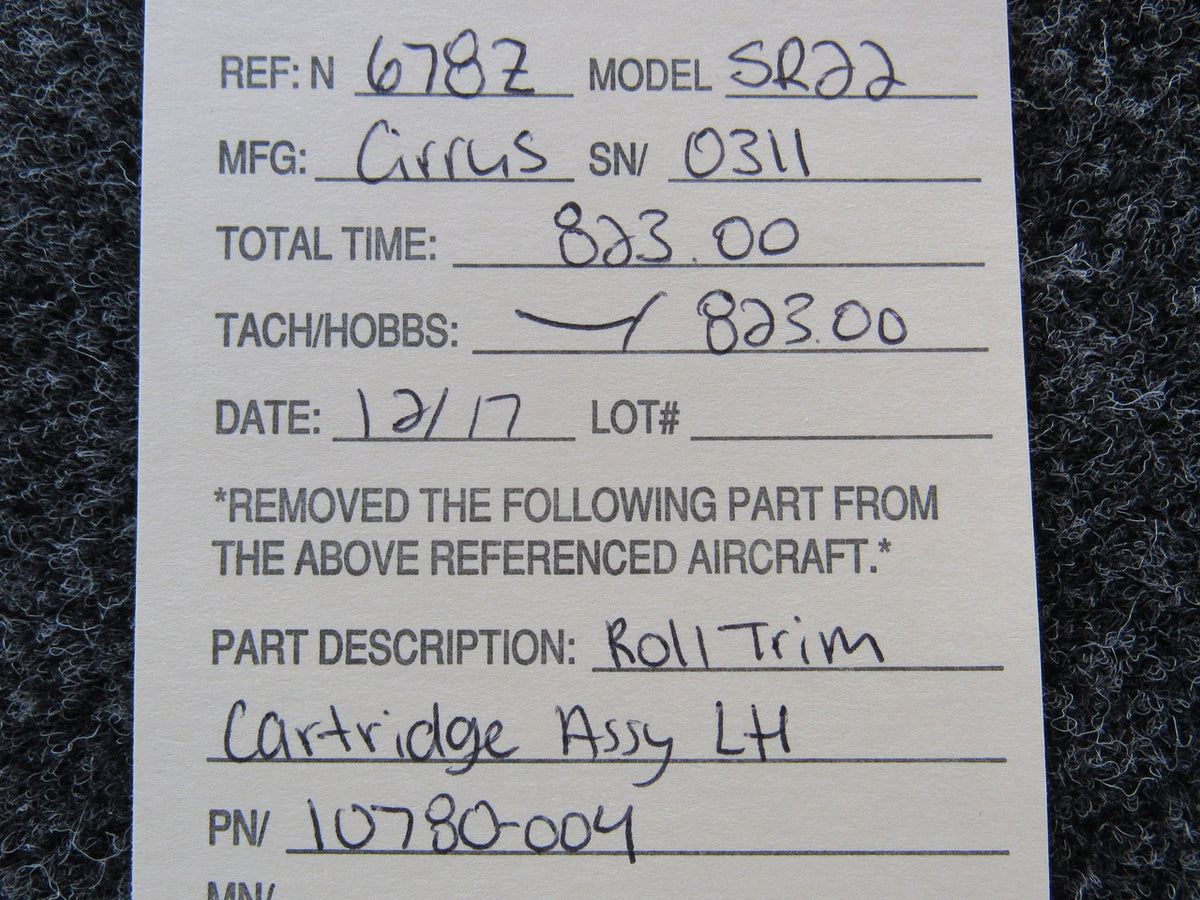 REF: N 678Z MODEL SR22
MFG: Cirrus SN/ 0311
TOTAL TIME: 823.00
TACH/HOBBS: —/ 823.00
DATE: 12/17 LOT#
*REMOVED THE FOLLOWING PART FROM
THE ABOVE REFERENCED AIRCRAFT.*
PART DESCRIPTION: Roll Trim
Cartridge Assy LH
PN/ 10780-004
MN/